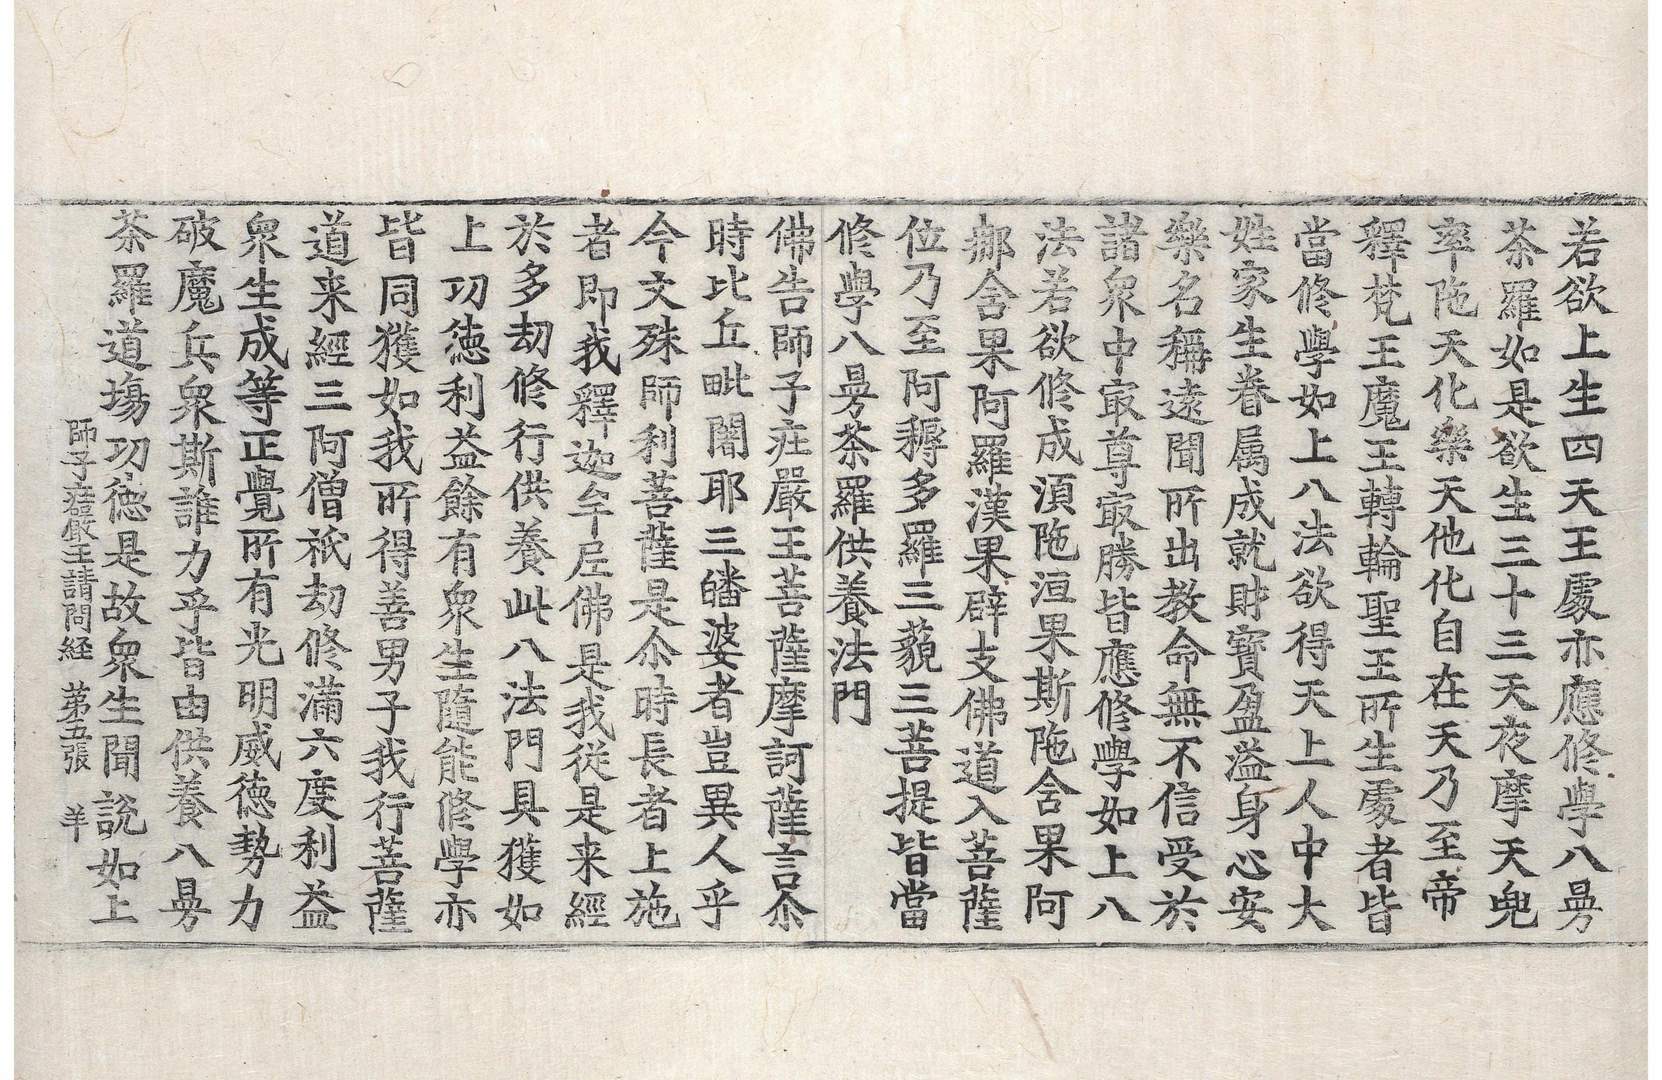 若欲上生四天王處亦應修學八曼
茶羅如是欲生三十三天夜摩天兜
率陁天化樂天他化自在天乃至帝
釋梵王魔王轉輪聖王所生處者皆
當修學如上八法欲得天上人中大
姓家生眷属成就財寶盈溢身心安
樂名稱遠聞所出教命無不信受於
諸衆中㝡尊㝡勝皆應修學如上八
法若欲修成湏陁洹果斯陁含果阿
那含果阿羅漢果辟支佛道入菩薩
位乃至阿耨多羅三藐三菩提皆當
修學八曼茶羅供養法門
佛告師子莊嚴王菩薩摩訶薩言尒
時比丘毗闍耶三皤婆者豈異人乎
今文殊師利菩薩是尒時長者上施
者即我釋迦牟尼佛是我從是来經
於多劫修行供養此八法門具獲如
上功德利益餘有衆生隨能修學亦
皆同獲如我所得善男子我行菩薩
道来經三阿僧祇劫修滿六度利益
衆生成等正覺所有光明威德勢力
破魔兵衆斯誰力乎皆由供養八曼
茶羅道場功德是故衆生聞說如上
師子莊嚴王請問経 苐五張 羊